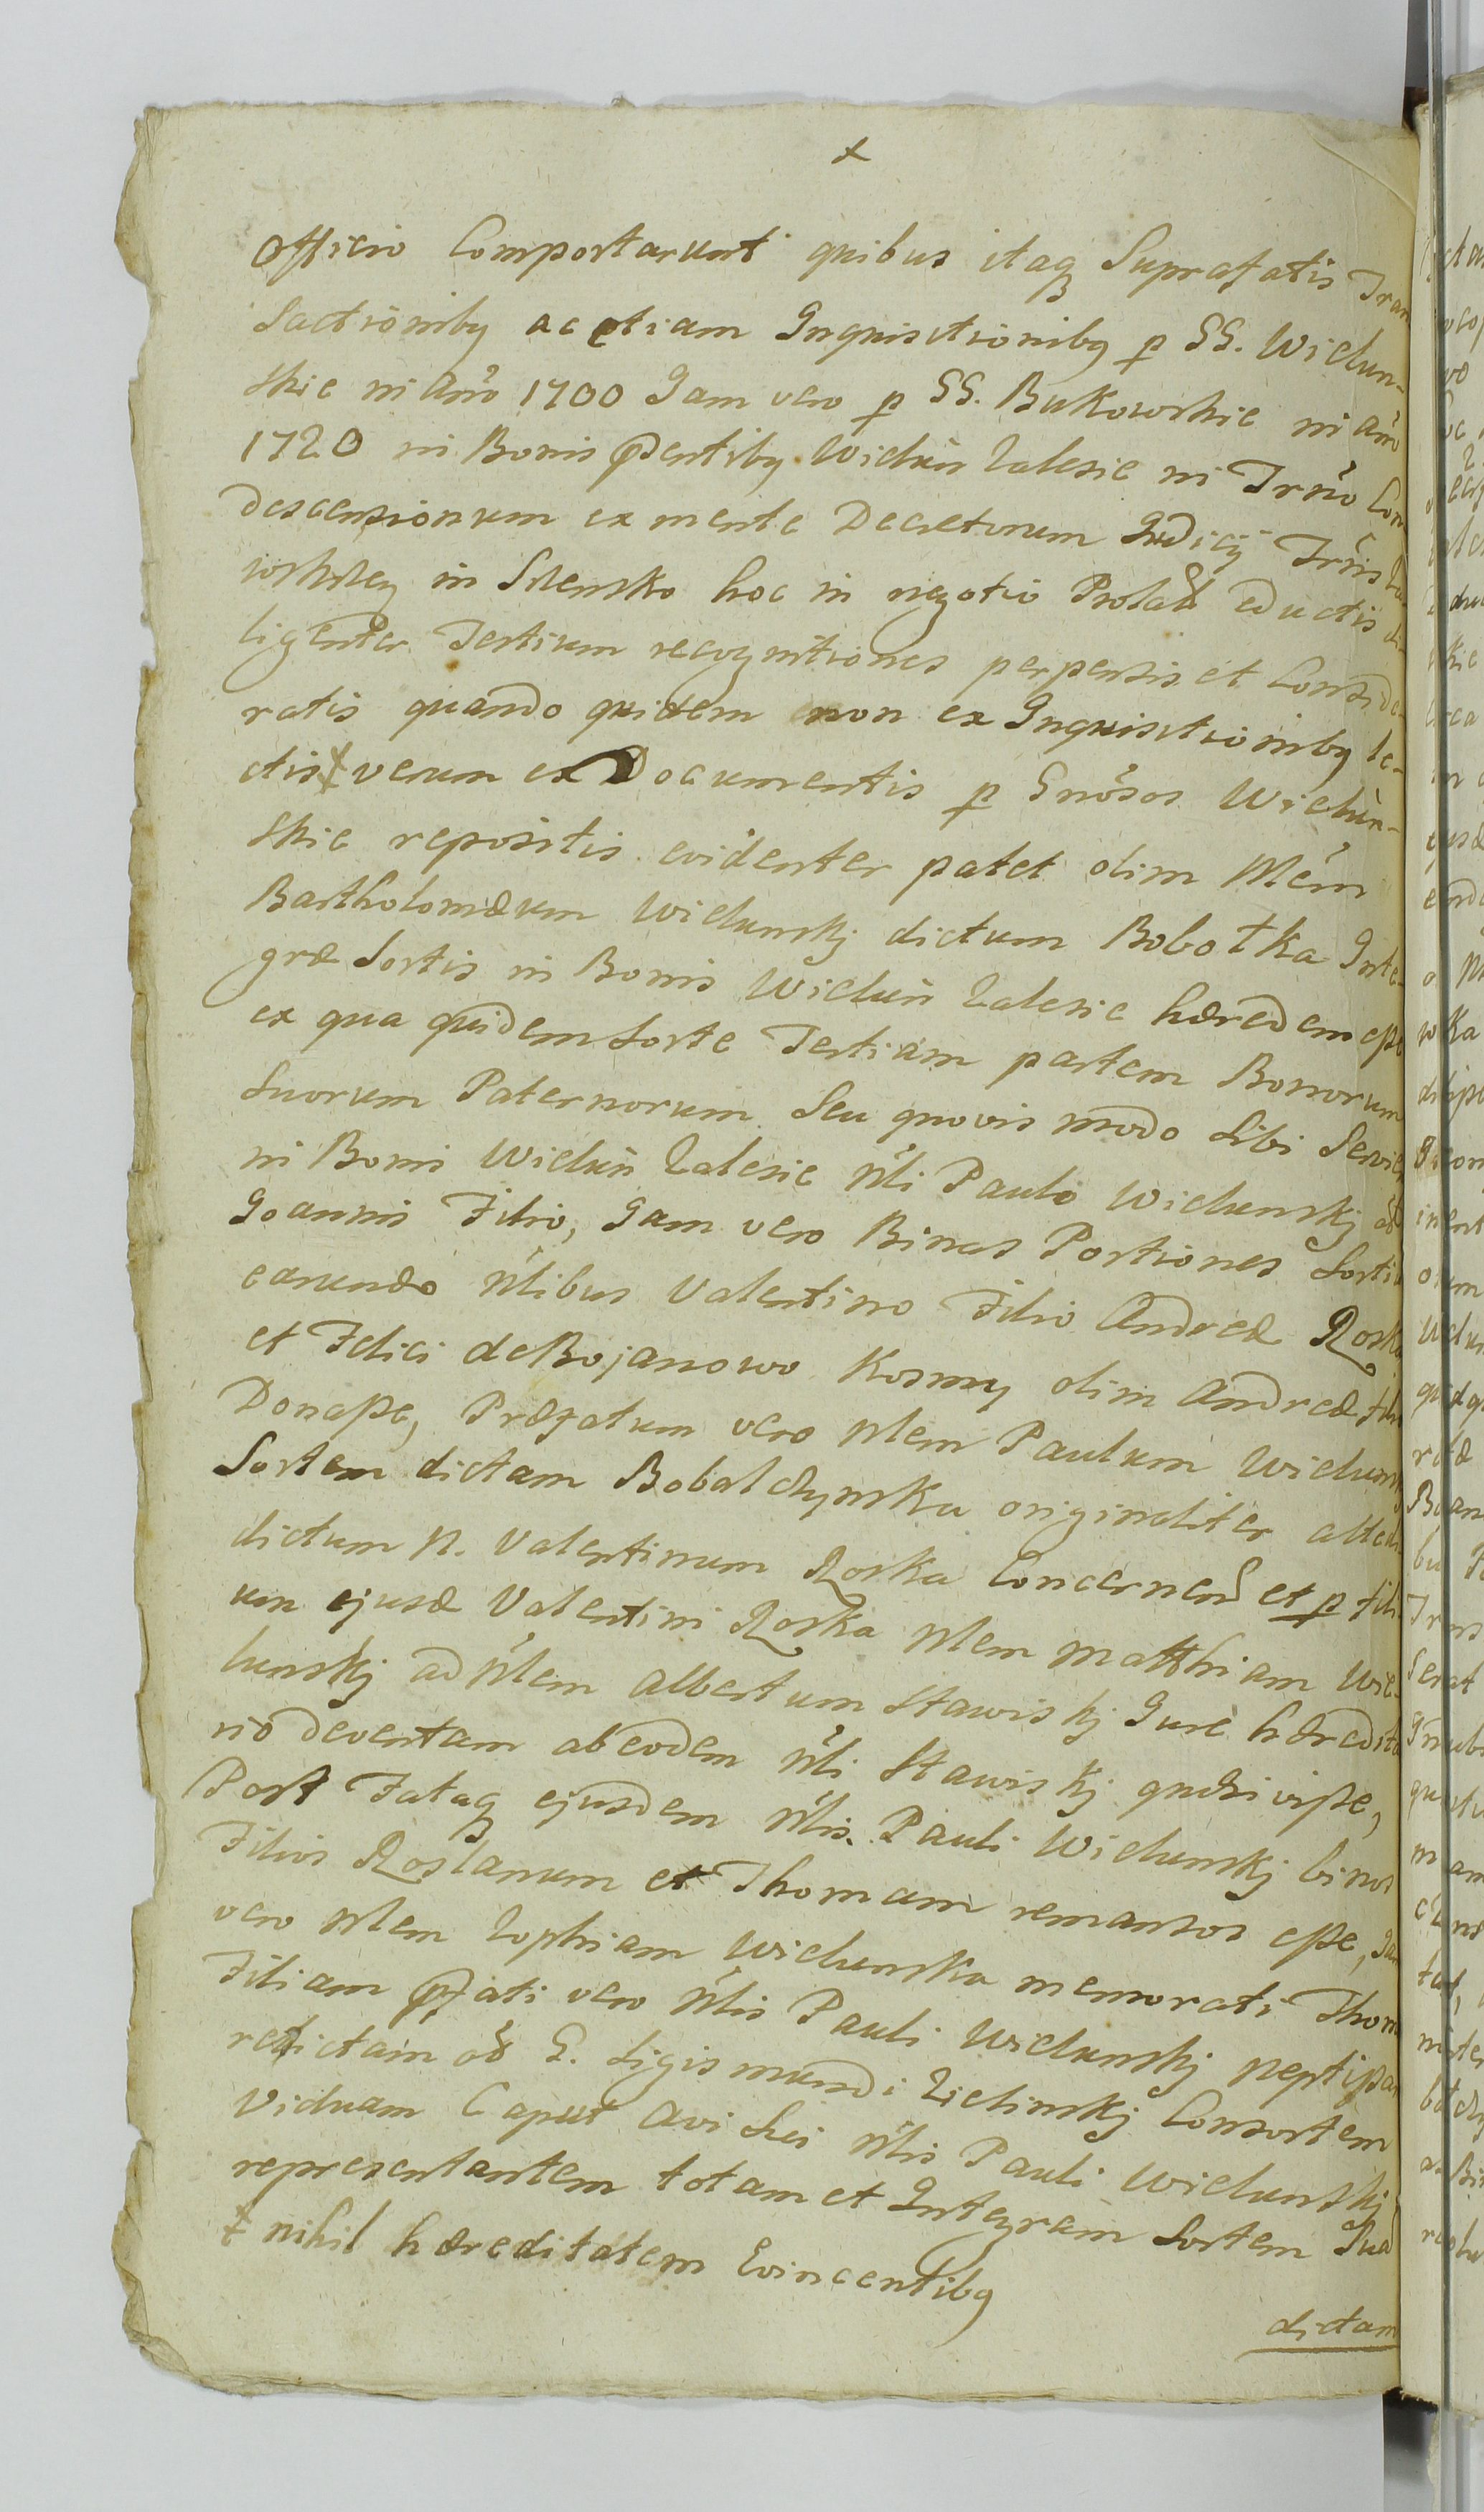 +
Officio Comportarunt quibus itaq Suprafatis Tran
sactioniby ac etiam Inquisitioniby p GG. Wielun-
skie in Año 1700 Jam vero p GG. Bukowskie in año
1720 in Bonis pħentiby Wieluń Zalesie in Trño Con
descensionum ex mente Decretorum Judicij Trris
in Srensko hoc in negotio Prolať eductis di
ligenter Testium recognitiones perpensis et Conside
ratis quando quidem non ex Inquisitioniby le-
ctis ɫ verum ex Documentis p Gnősos Wieluń-
skie repositis evidenter patet olim Mcm
Bartholomæum Wielunskj dictum Bobotka Inte-
græ Sortis in Bonis Wieluń Zalesie hæredem esse
ex qua quidem Sorte Tertiam partem Bonorum
Suorum Paternorum Seu quovis modo Sibi Servien
in Bonis Wieluń Zalesie Nłi Paulo Wielunskj oł
Joannis Filio, Jam vero Binas Portiones Sortis
earundo Nłibus Valentino Filio Andreæ Roska
et Felici de Bojanowo Kosmy olim Andreæ Filio
Donasse, Præfatum vero Nlem Paulum Wielunskj
Sortem dictam Bobałczynska originaliter
dictum N. Valentinum Roska Concerneñ et p fili
um ejusd Valentini Roska Nlem Matthiam Wie-
lunskj ad Nłem Albertum Stawiskj Jure hæredita
rio devectam ab eodem Nłi Stawiskj quæsivisse,
Post Fataq ejusdem Nłis. Pauli Wielunskj binos
Filios Roslanum et Thomam remansos esse, Jam
vero Nlem Zophiam Wielunska memorati Thom
Filiam pfati vero Nłis Pauli Wielunskj neptissam
relictam oł G. Sigismundi Zielinskj Consortem
Viduam Caput Avi Sui Nłis Pauli Wielunskj
representantem totam et Integram Sortem Suã
ɫ nihil hæreditatem Evincentiby
dictam